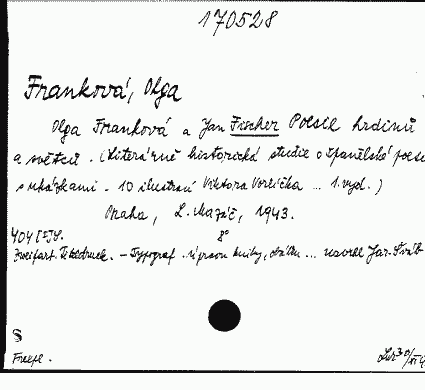 170528
Franková, Olga
Olga Franková a Jan Fischer Poesie hrdinů
a světců. (Literárně historická studie o španělské poesii
s ukázkami. 10 ilustrací Viktora Vorlíčka ... 1. vyd.)
Praha, L. Mazáč, 1943.
404 [-] S. 8°
Zweifarb. Titeldruck. - Typograf. úpravu knihy, obálku ... navrhl Jar. Šváb
S